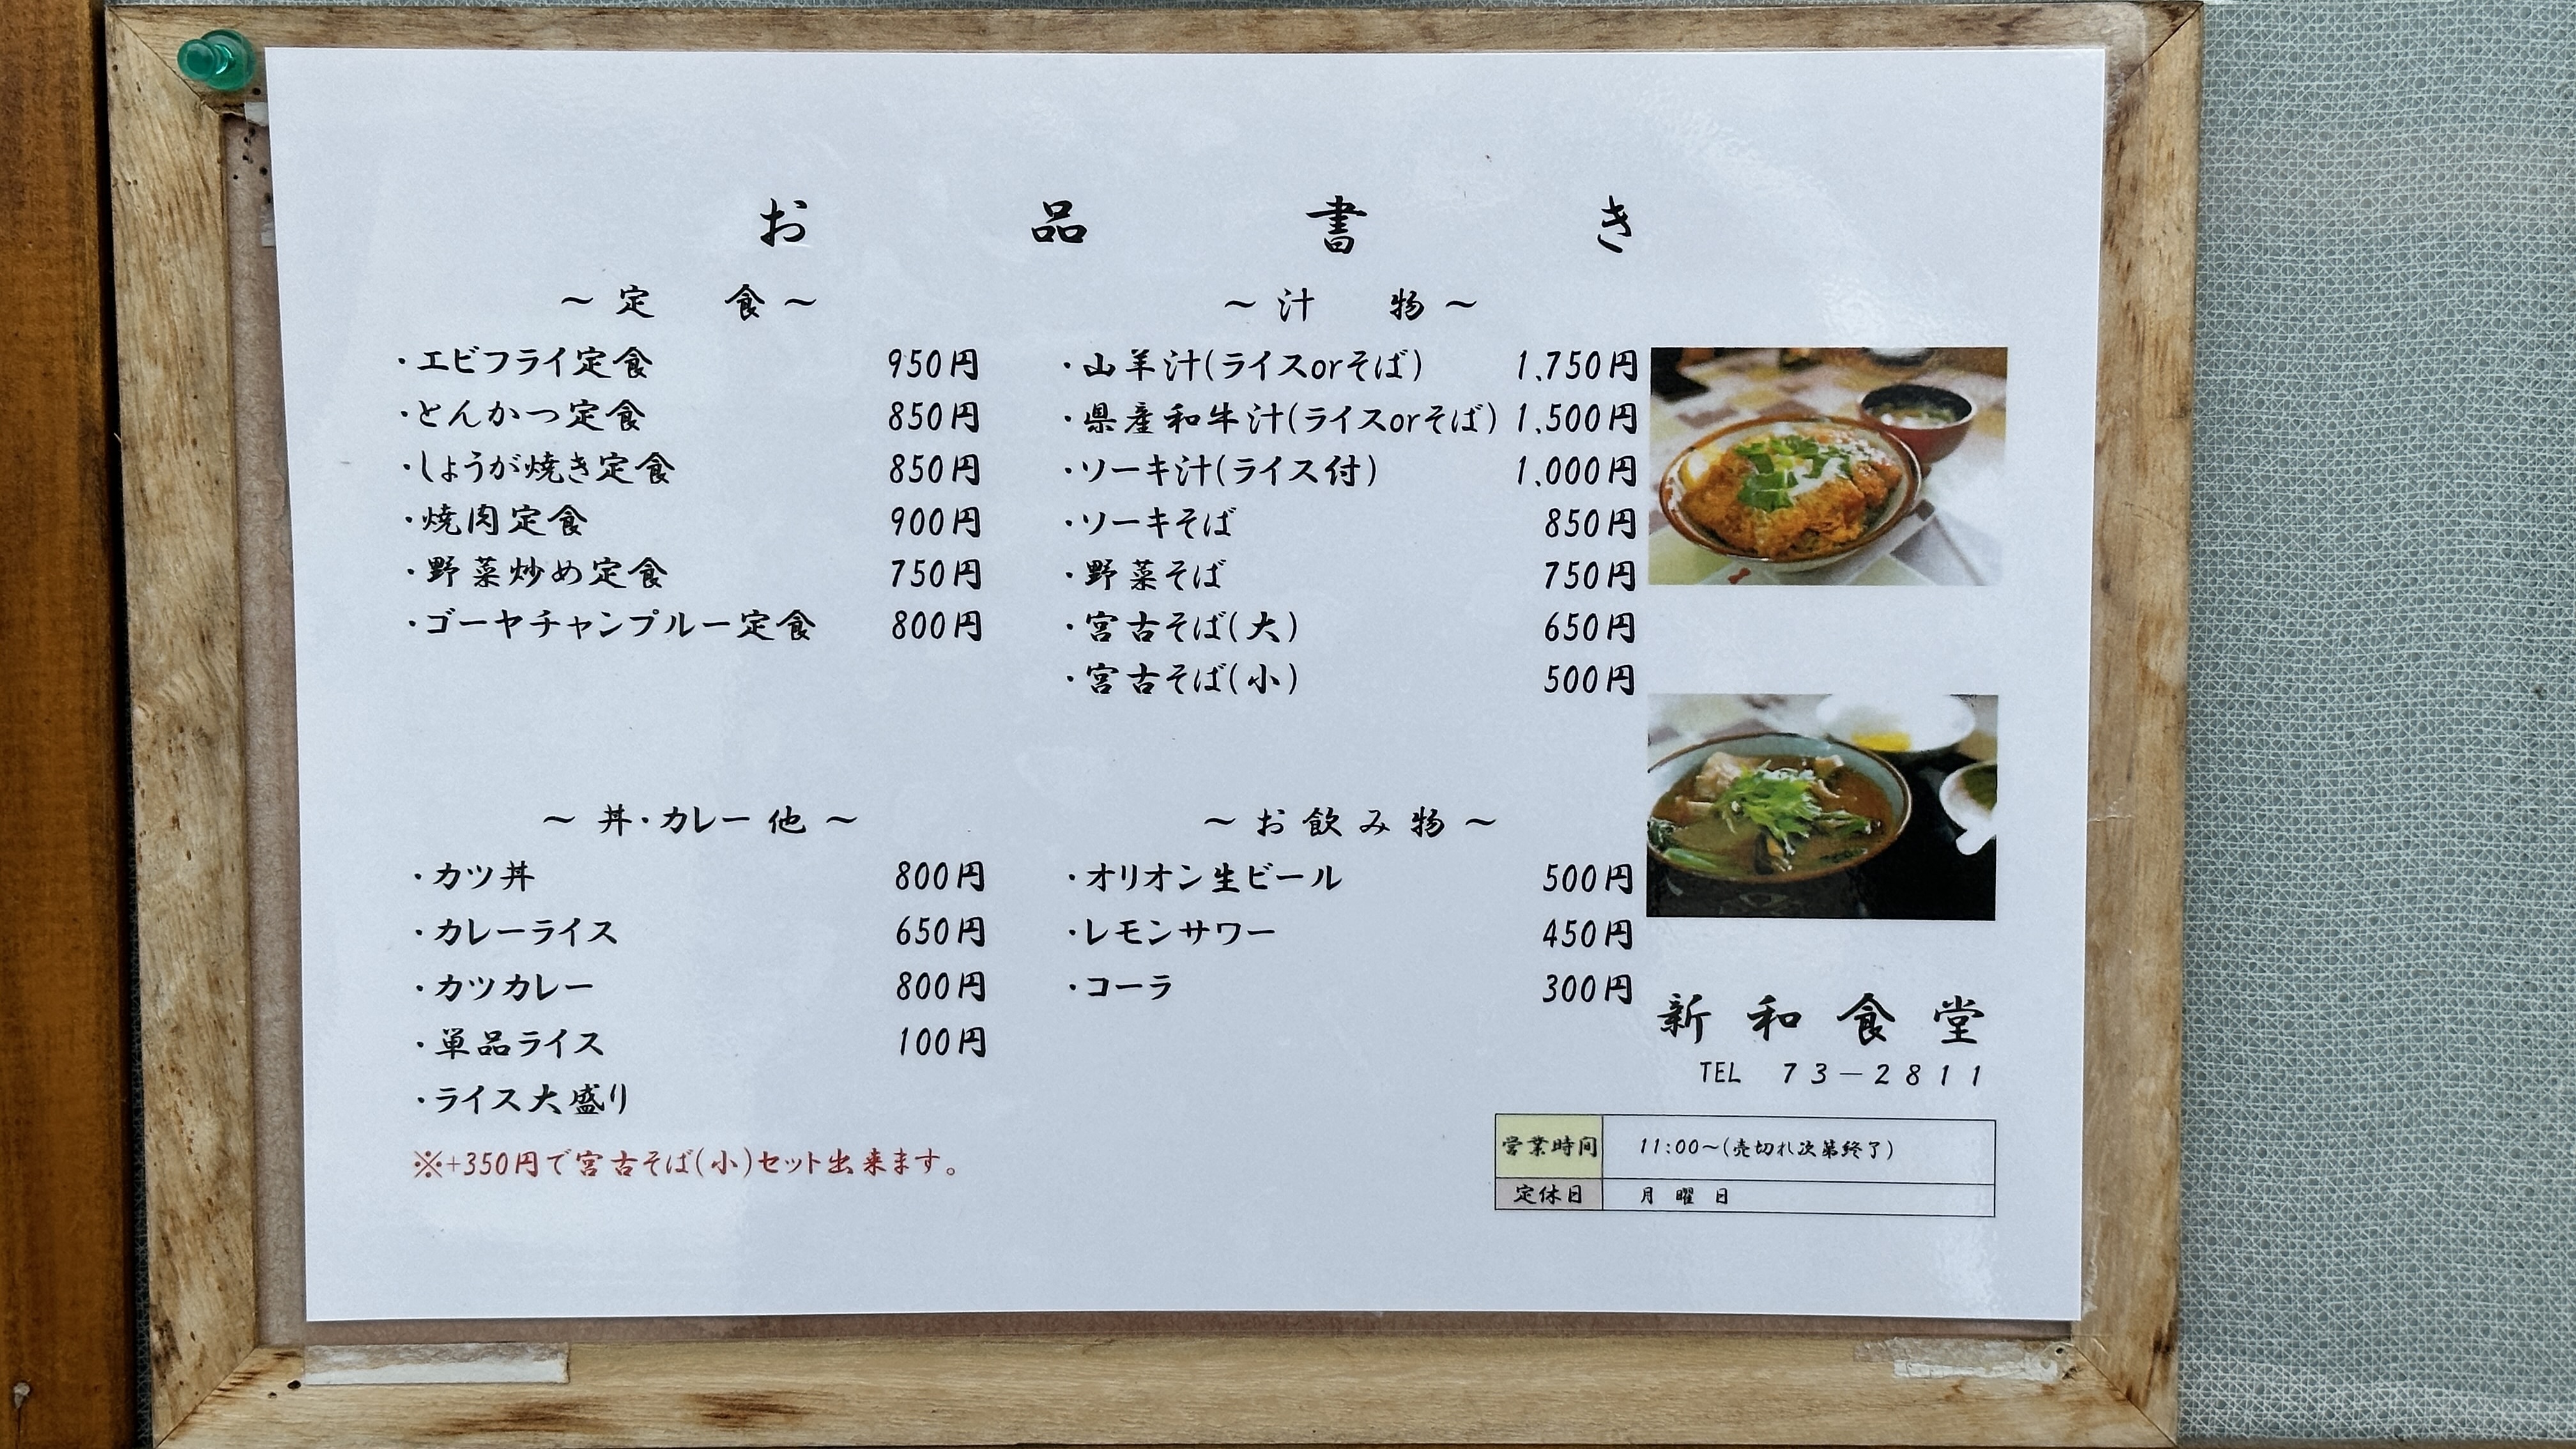 お品書き
～定　食～
・エビフライ定食 950円
・とんかつ定食 850円
・しょうが焼き定食 850円
・焼肉定食 900円
・野菜炒め定食 750円
・ゴーヤチャンプルー定食 800円
～汁　物～
・山羊汁(ライスorそば) 1,750円
・県産和牛汁(ライスorそば) 1,500円
・ソーキ汁(ライス付) 1,000円
・ソーキそば 850円
・野菜そば 750円
・宮古そば(大) 650円
・宮古そば(小) 500円
～丼・カレー他～
・カツ丼 800円
・カレーライス 650円
・カツカレー 800円
・単品ライス 100円
・ライス大盛り
※+350円で宮古そば(小)セット出来ます。
～お飲み物～
・オリオン生ビール 500円
・レモンサワー 450円
・コーラ 300円
新和食堂
TEL 73－2811
営業時間 11:00～(売切れ次第終了)
定休日 月曜日